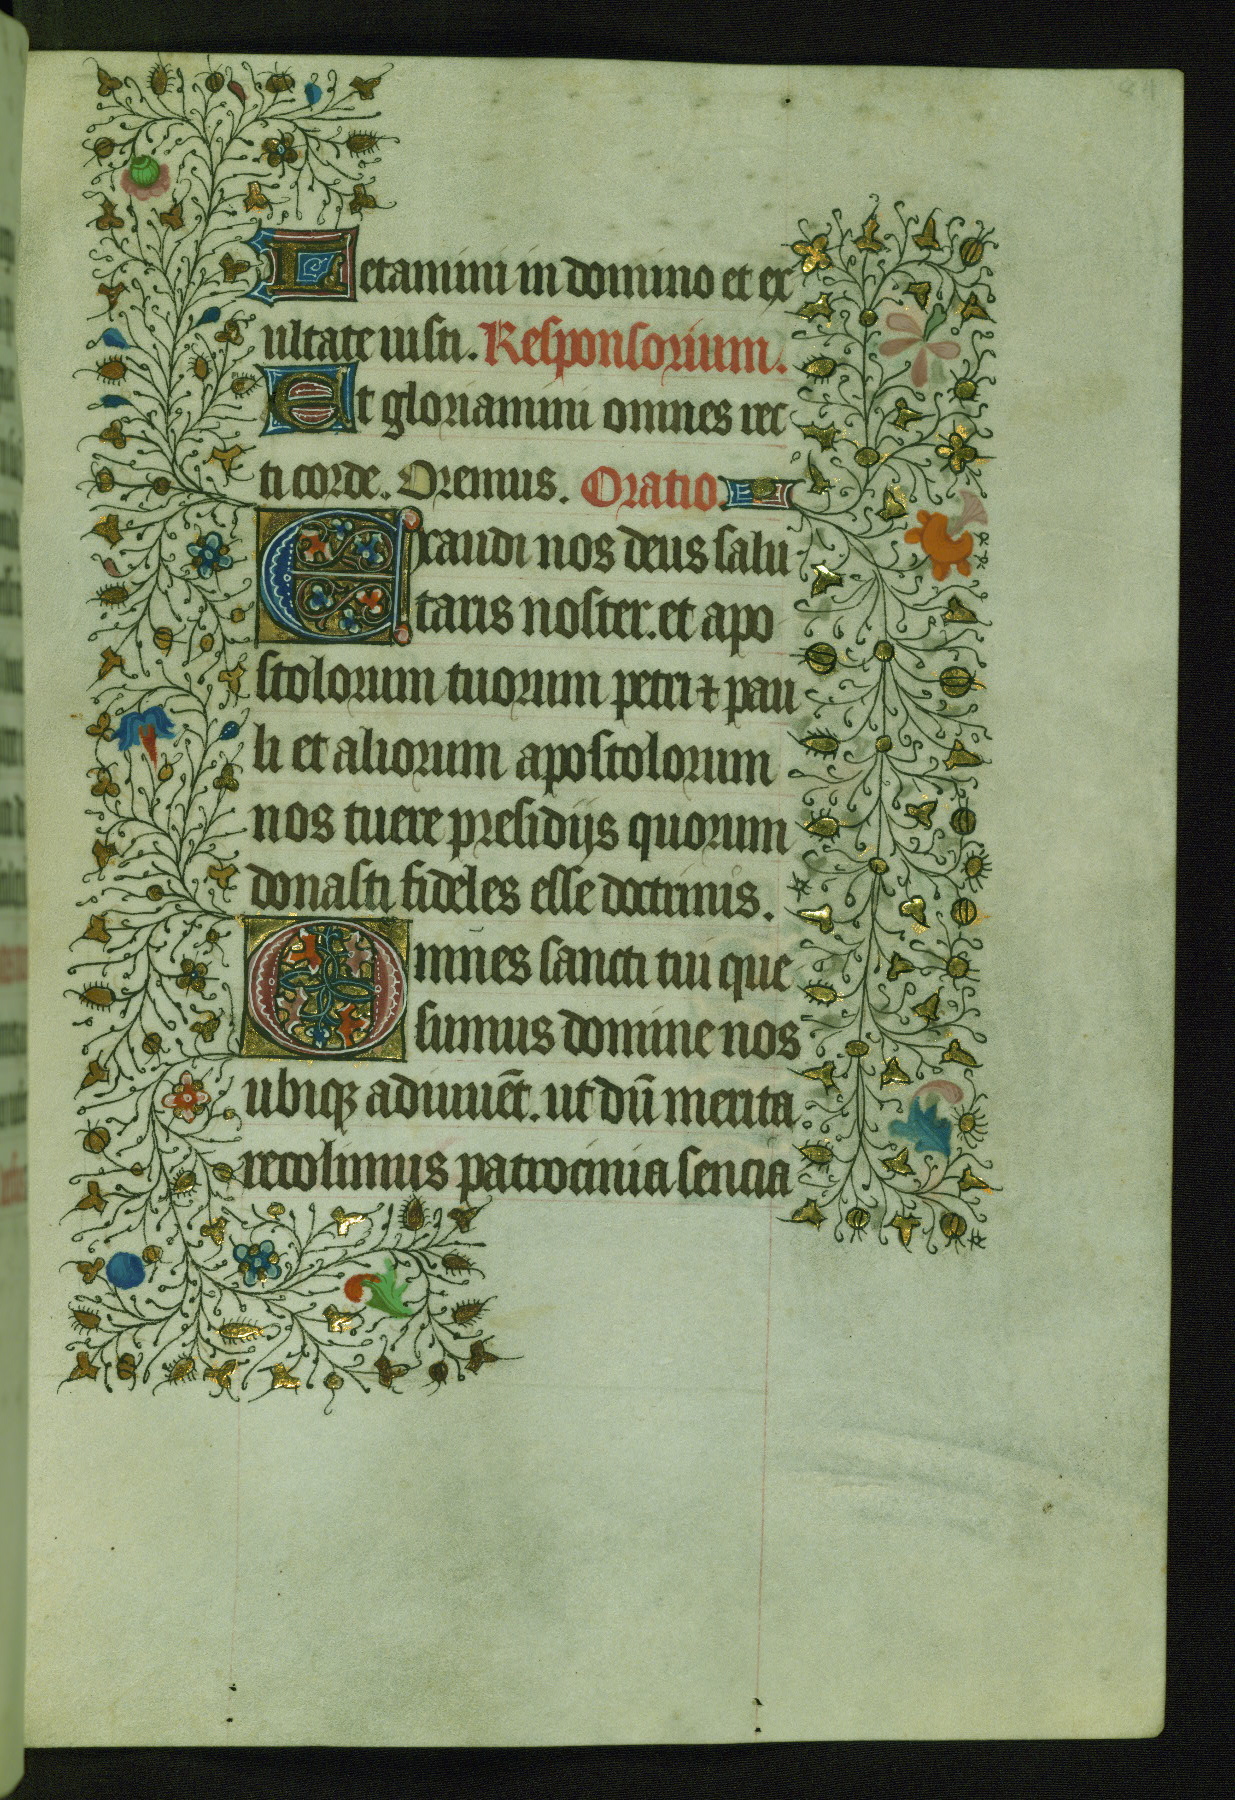 Letamini in domino et ex
ultate iusti. Responsorium.
Et gloriamini omnes rec
ti corde. Oremus. Oratio.
Exaudi nos deus salu
taris noster. et apo
stolorum tuorum petri ⁊ pau
li et aliorum apostolorum
nos tuere presidijs quorum
donasti fideles esse doctrinis.
Omnes sancti tui que
sumus domine nos
ubiqꝫ adiuuēt. ut dū merita
recolimus patrocinia sencia